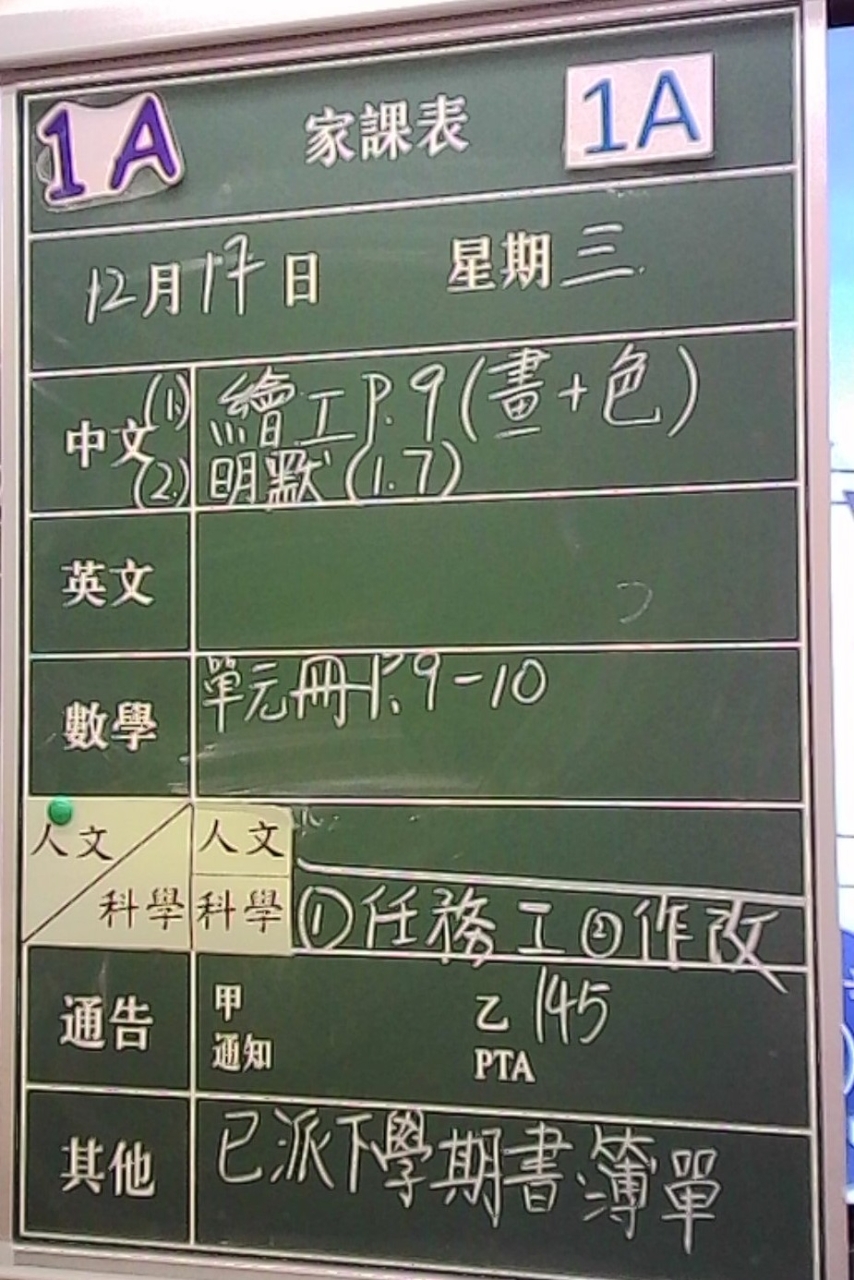 1A 家課表 1A
12月17日 星期三
中文 (1.) 繪工P.9(畫+色)
(2.) 明默(1.7)
英文
數學 單元冊P.9-10
人文 人文
科學 科學 ①任務工②作改
通告 甲 乙 145
通知 PTA
其他 已派下學期書簿單